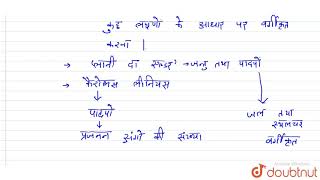 कुछ लक्षणों के आधार पर वर्गीकृत
करना |
→ प्लानी दा → जन्तु तथा पादपों
→ कैरोलस लीनियस
पादपो
जल तथा
स्थलचर
वर्गीकृत
प्रजनन अंगों की संख्या
doubtnut